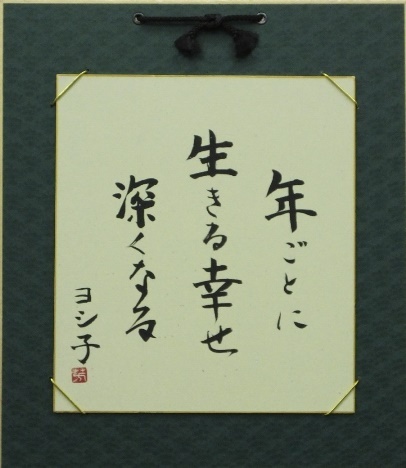 年ごとに
生きる幸せ
深くなる
ヨシ子